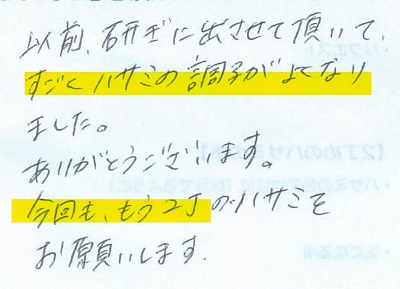 以前、研ぎに出させて頂いて、
すごくハサミの調子がよくなり
ました。
ありがとうございます。
今回も、もう2丁のハサミを
お願いします。